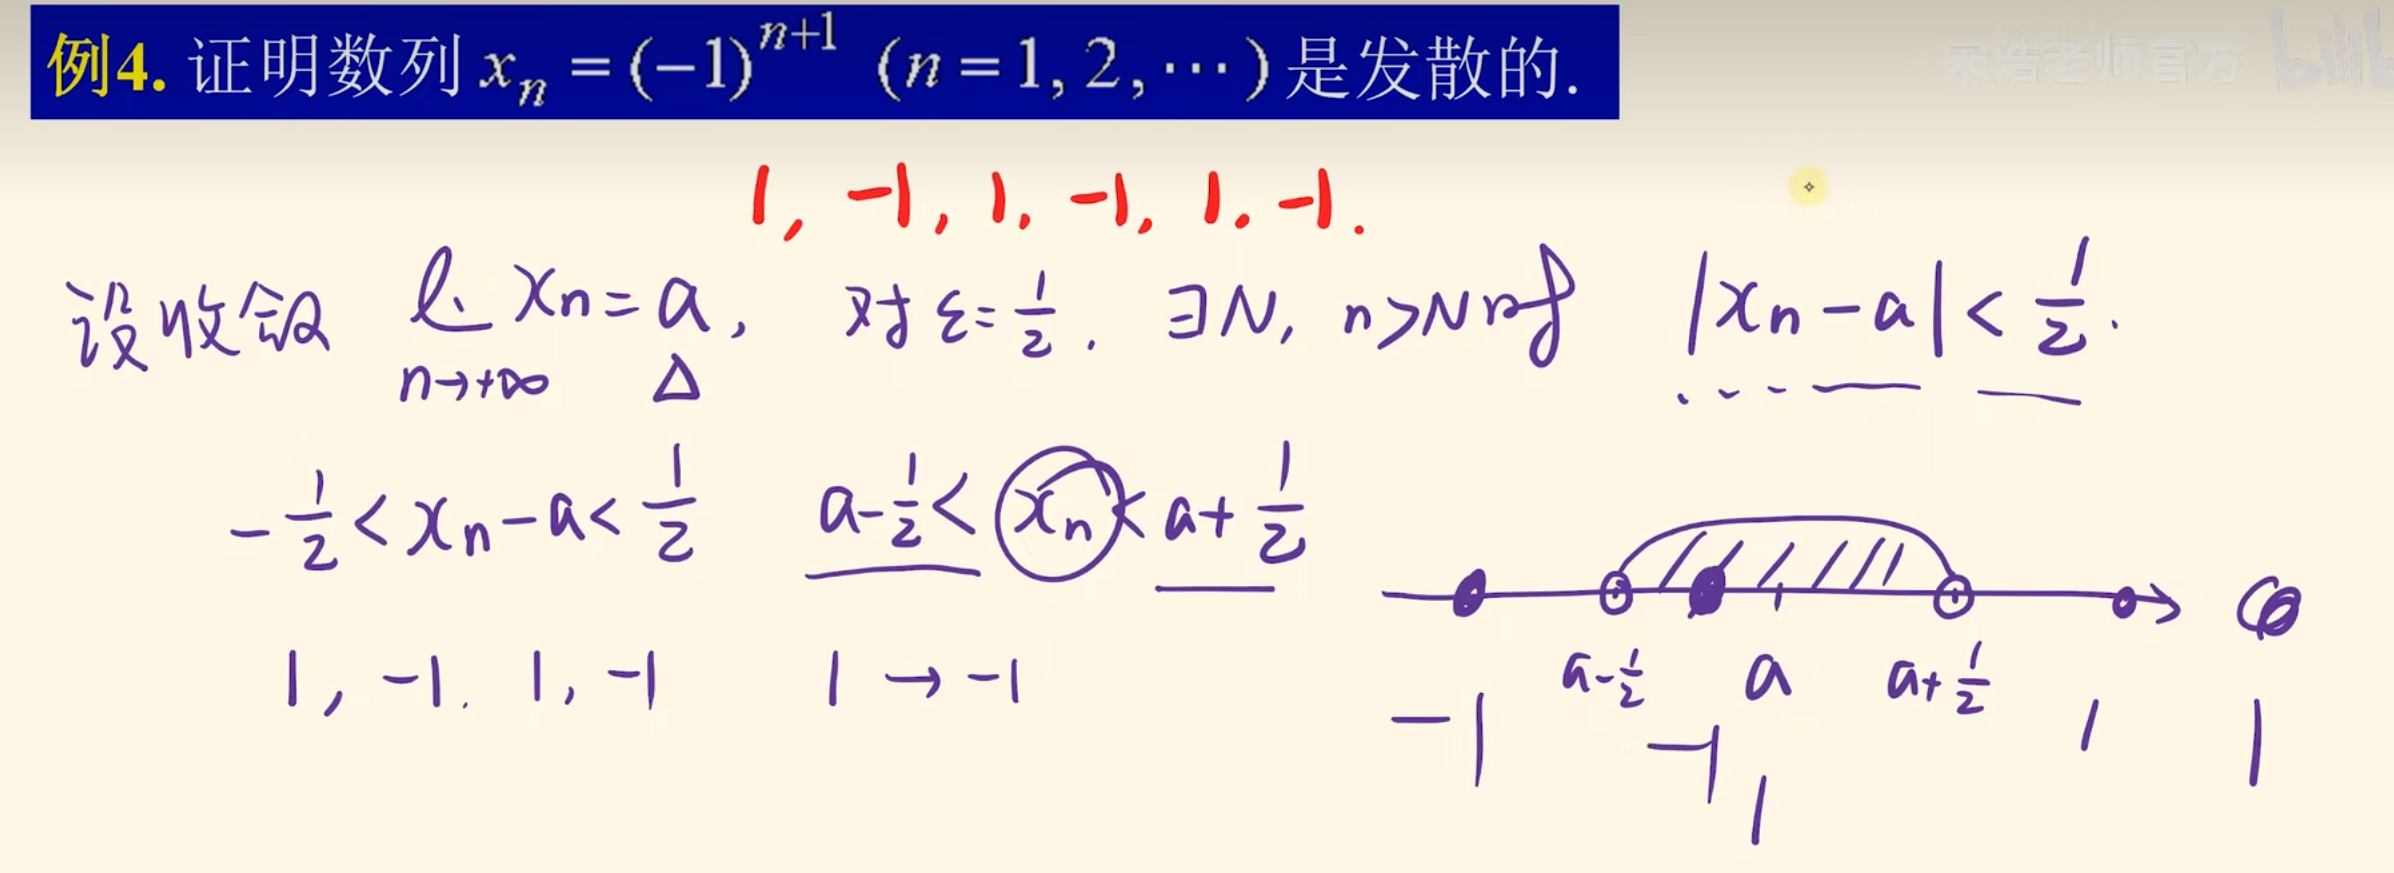 例4. 证明数列 xₙ = (−1)ⁿ⁺¹ (n = 1, 2, ⋯) 是发散的.
宋浩老师官方 bilibili
1, -1, 1, -1, 1, -1.
设收敛 lim xₙ = a, 对 ε = 1/2. ∃N, n>N时 |xₙ - a| < 1/2.
n→+∞ △
-1/2 < xₙ - a < 1/2 a - 1/2 < xₙ < a + 1/2
1, -1. 1, -1 1 → -1
a - 1/2 a a + 1/2
-1 -1 1 1
1